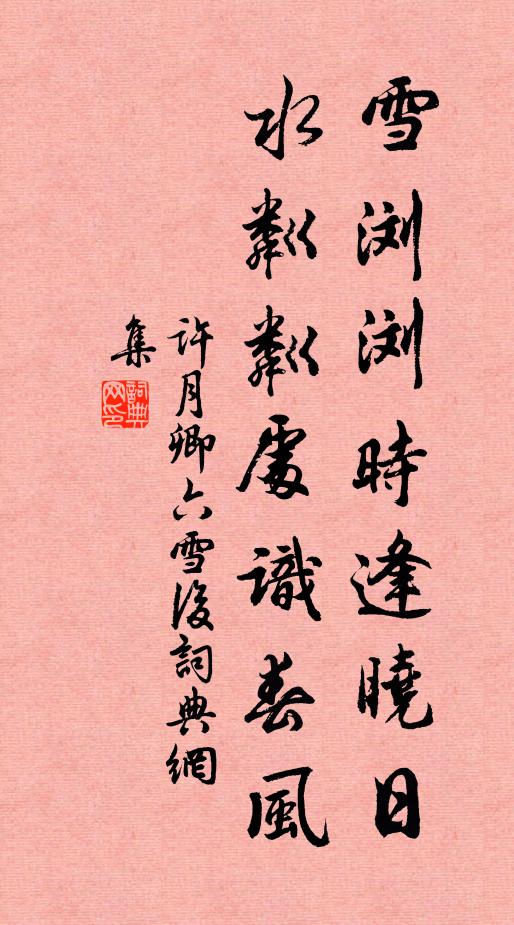 雪浏浏時逢曉日
水粼粼處識春風
許月卿六雪後詞典網
集
詞典網印